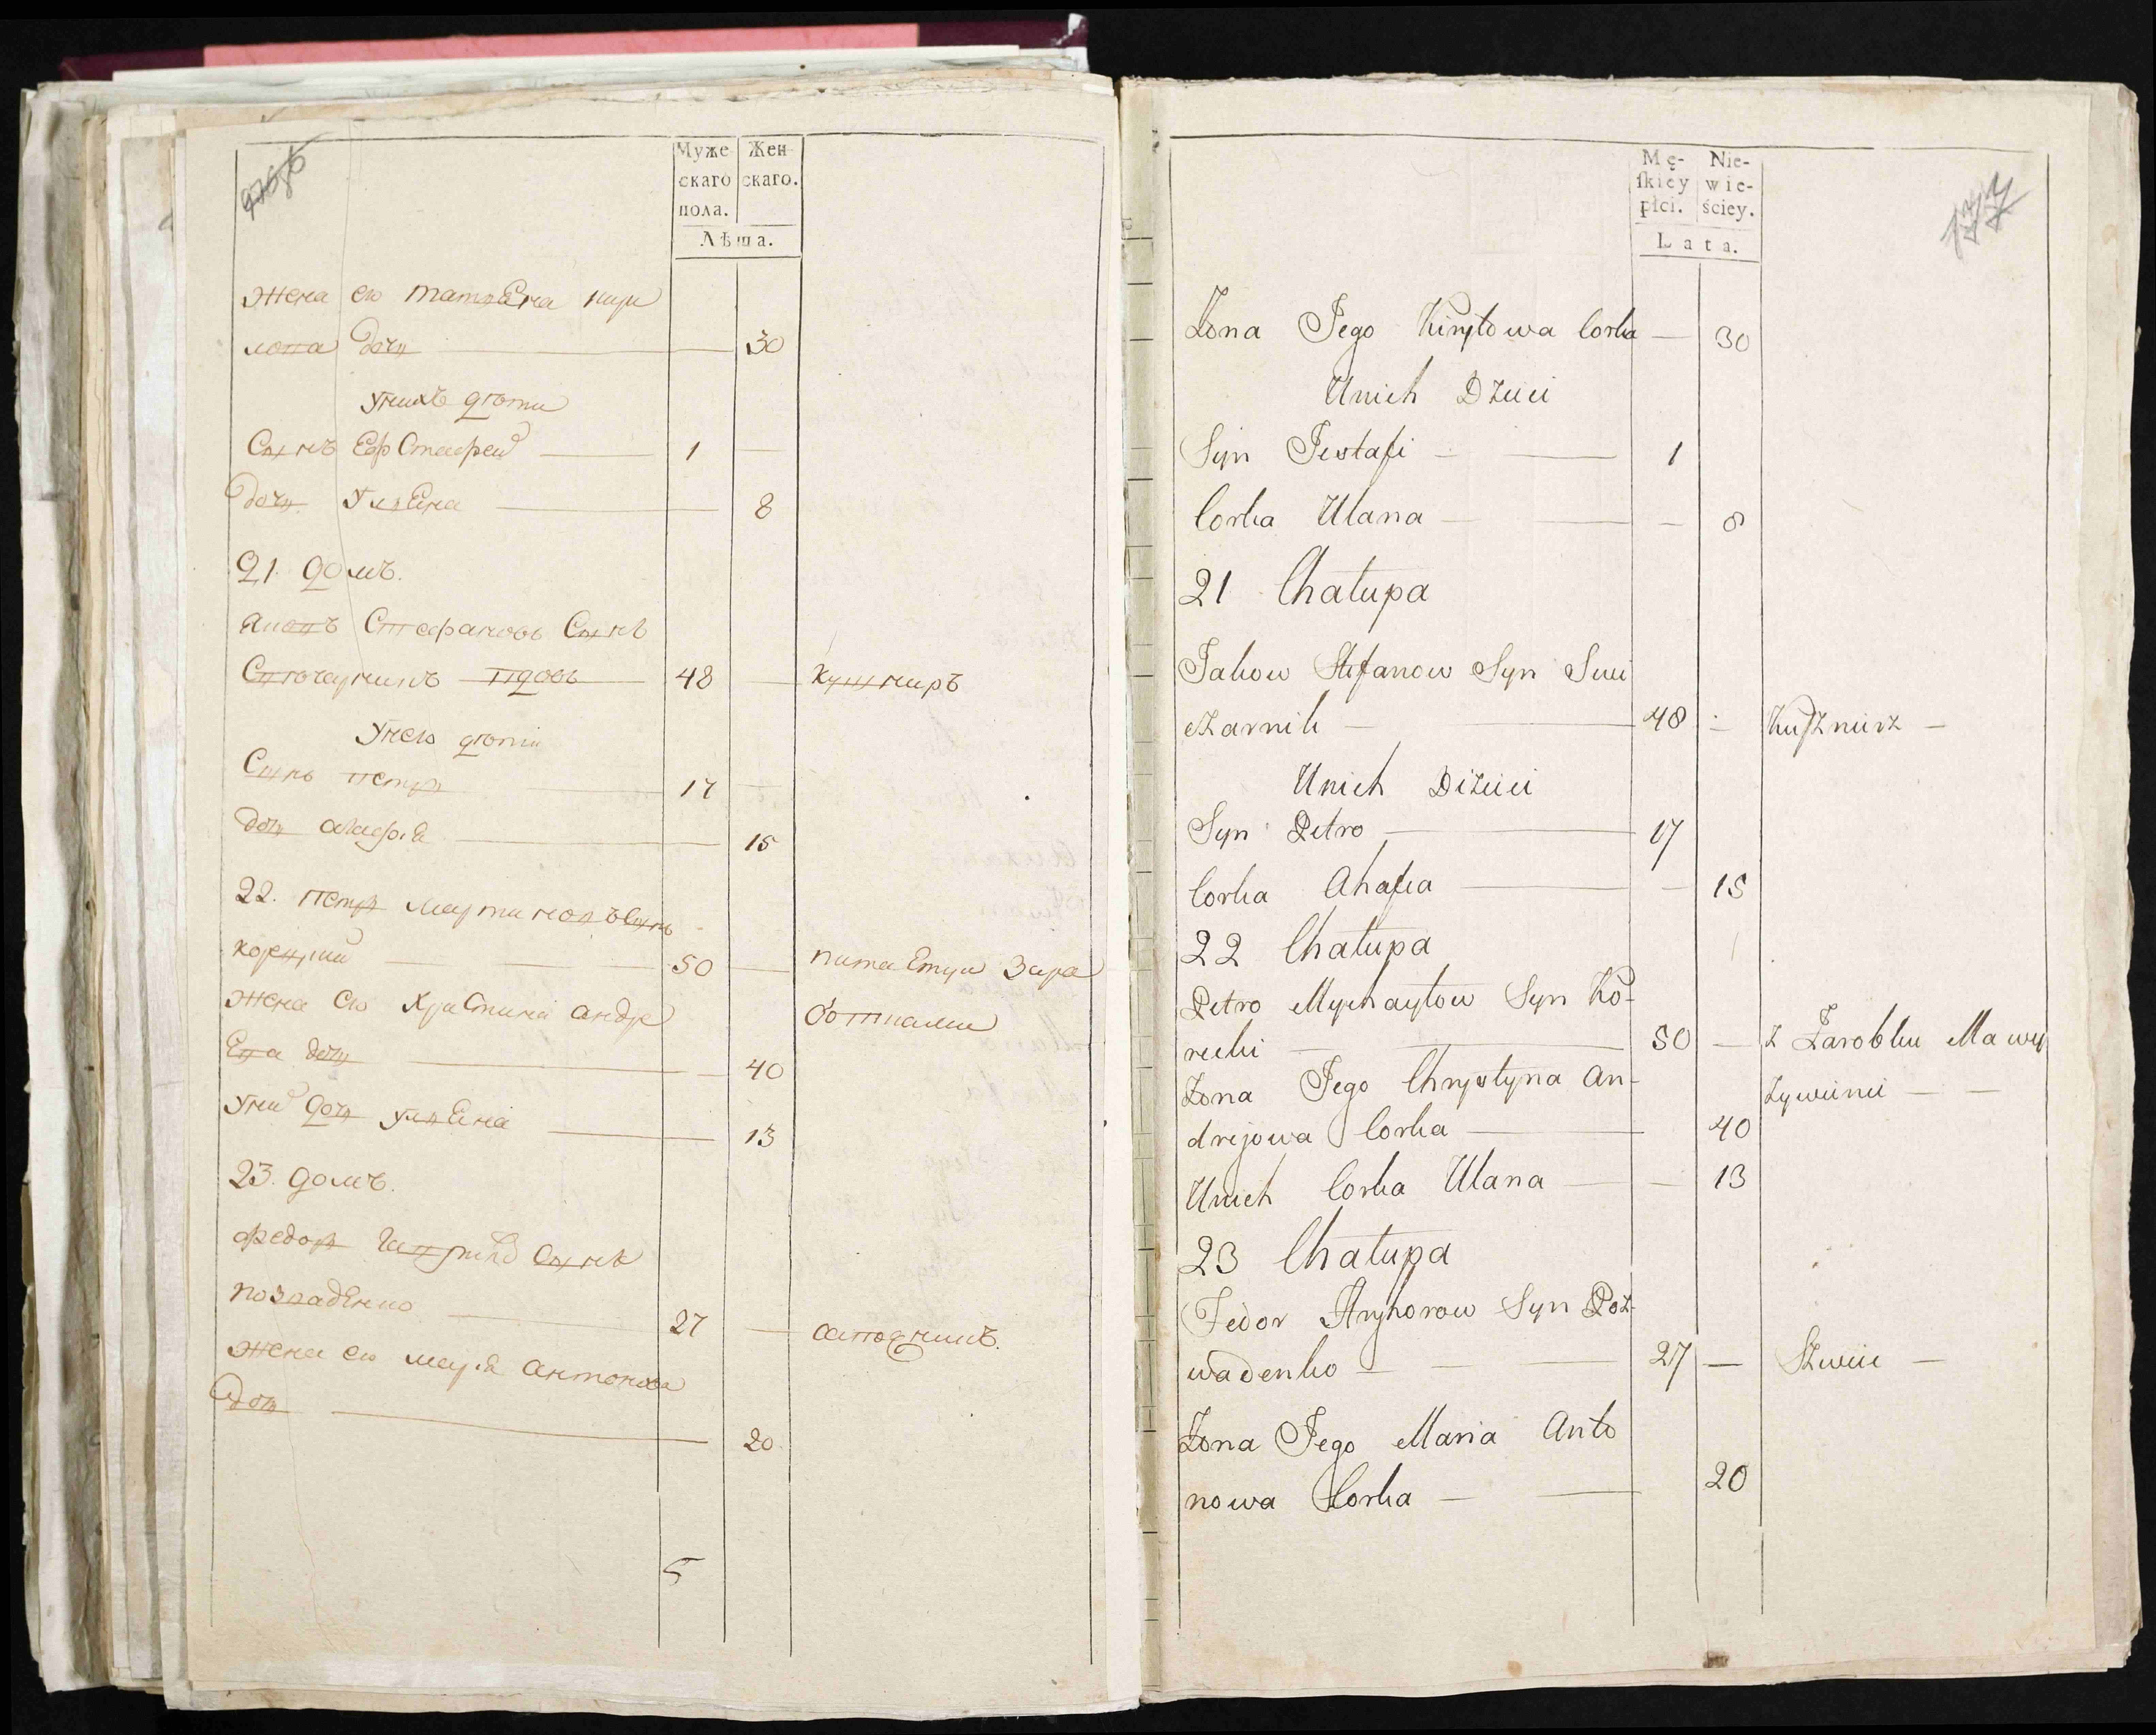 Муже-
скаго
пола.
Жен-
скаго.
Лѣта.
жена ево татьяна кири
лова дочь 30
у нихъ дѣти
Сынъ Евстафей 1
дочь Ульяна 8
21. домъ.
яковъ Стефановъ Сынъ
вдовъ 48 кушниръ
у нево дѣти
Сынъ петръ 17
дочь агафья 15
22. петръ Сынъ
корецкий 50 питаетца зара
жена ево Христина андре 
ботками
ева дочь 40
у них дочь ульяна 13
23. домъ.
федоръ Сынъ
позваденко 27 сапожникъ.
жена ево марья антонова
дочь 20
5
177
Mę-
skiey
płci.
Nie-
wie-
ściey.
Lata.
Żona Jego Kiryłowa Corka — 30
Unich Dzieci
Syn Jewstafi — 1
Corka Ulana — — 8
21 Chałupa
Jakow Stefanow Syn Swi
czarnik — 48 — Kuſznirz —
Unich Dizieci
Syn Petro — 17
Corka Ahafia — — 15
22 Chałupa
Petro Mychayłow Syn Ko-
recki — 50 — z Zarobku Ma wy
Żona Jego Chrystyna An-
zywienie —
drejowa Corka — 40
Unich Corka Ulana — — 13
23 Chałupa
Fedor Hryhorow Syn Poz-
wadenko — 27 — Szwiec —
Żona Jego Maria Anto
nowa Corka — 20